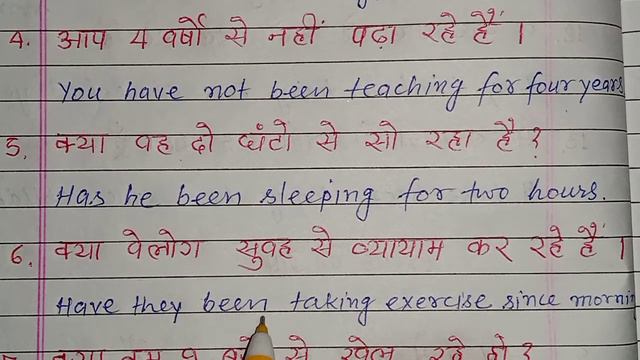 4. आप 4 वर्षो से नहीं पढ़ा रहे हैं।
You have not been teaching for four years
5. क्या वह दो घंटो से सो रहा है?
Has he been sleeping for two hours.
6. क्या वेलोग सुबह से व्यायाम कर रहे हैं।
Have they been taking exercise since morni
से खेल रहे हो?